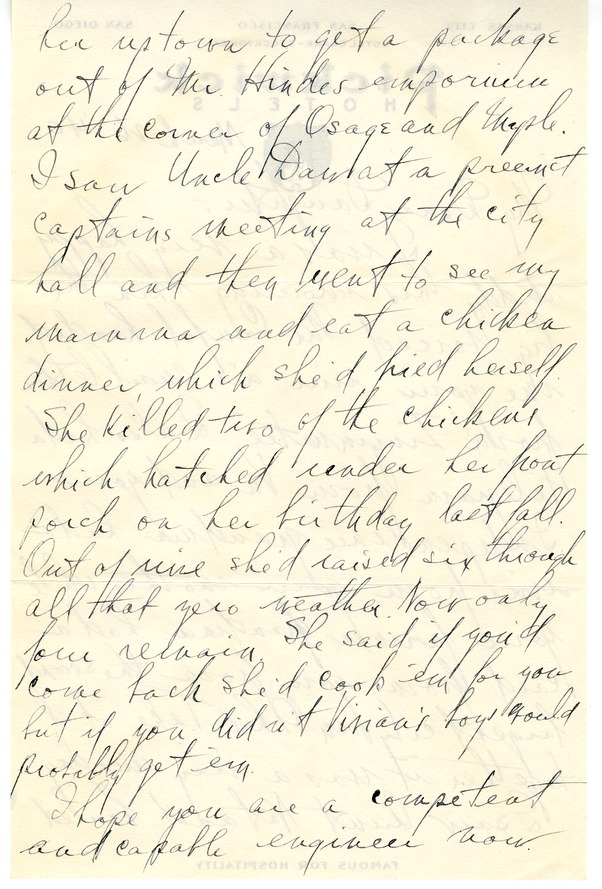 her uptown to get a package
out of Mr. Hindes emporium
at the corner of Osage and Maple.
I saw Uncle Dan at a precinct
captains meeting at the city
hall and then went to see my
mamma and eat a chicken
dinner, which she'd fried herself.
She killed two of the chickens
which hatched under her front
porch on her birthday last fall.
Out of nine she'd raised six through
all that zero weather. Now only
four remain. She said if you'd
come back she'd cook 'em for you
but if you didn't Vivian's boys would
probably get 'em.
I hope you are a competent
and capable engineer now.
FAMOUS FOR HOSPITALITY